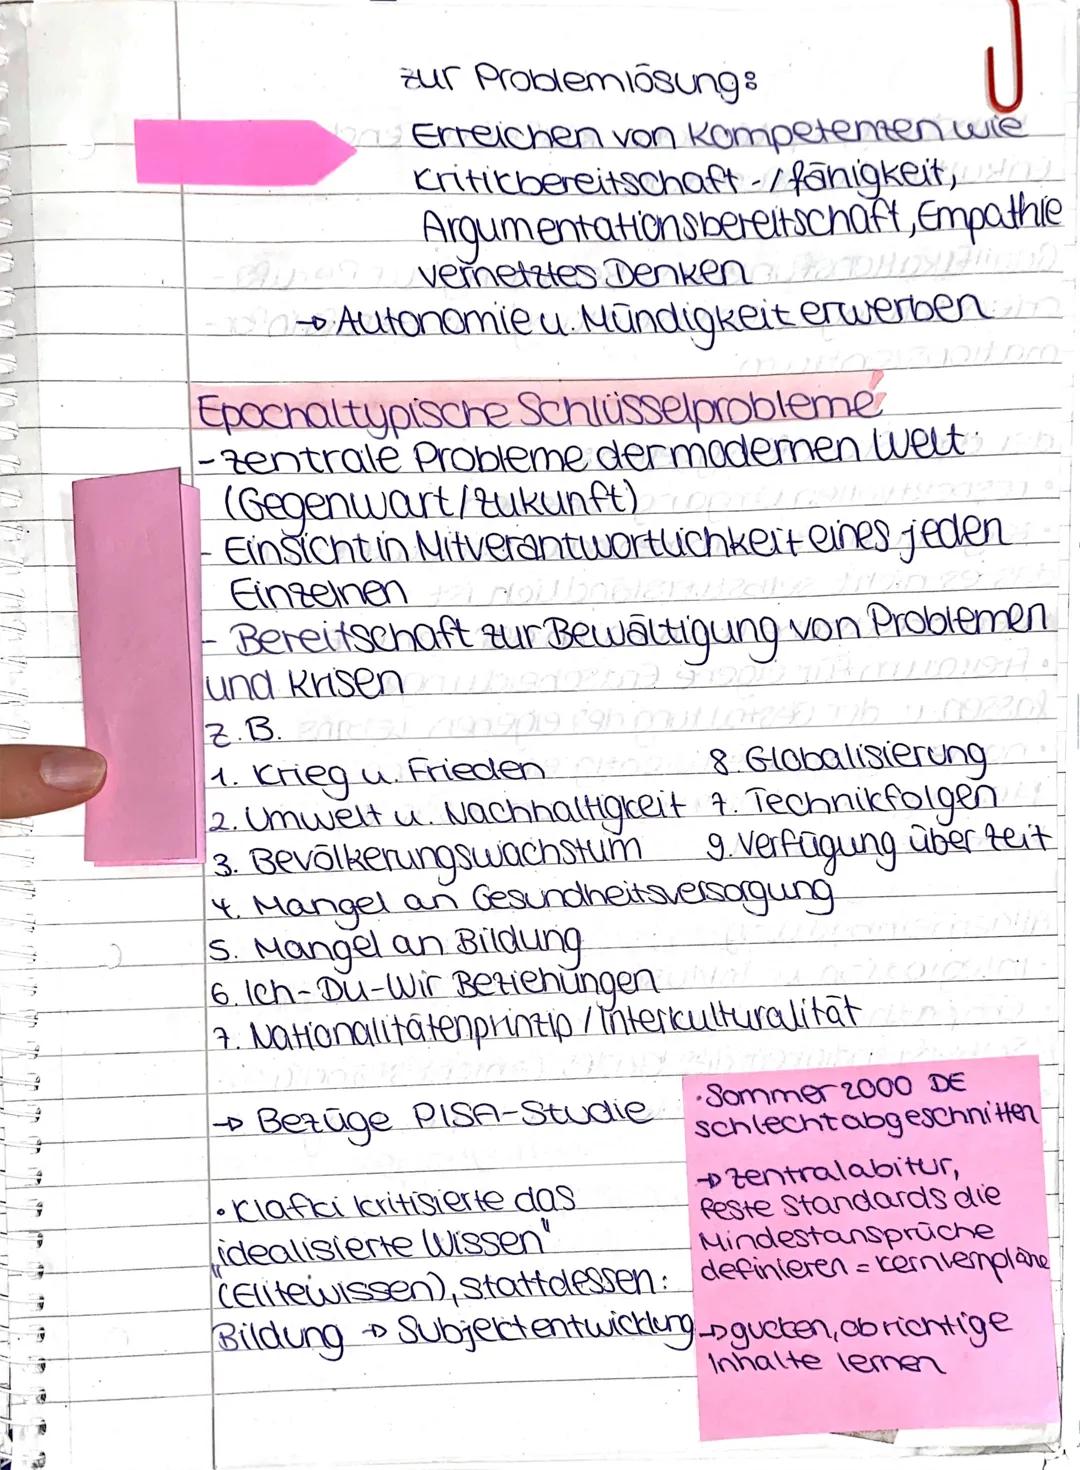 zur Problemlösung:
Erreichen von Kompetenzen wie
Kritikbereitschaft -/fähigkeit,
Argumentationsbereitschaft, Empathie
vernetztes Denken
→ Autonomie u. Mündigkeit erwerben
Epochaltypische Schlüsselprobleme
- zentrale Probleme der modernen Welt
(Gegenwart/Zukunft)
- Einsicht in Mitverantwortlichkeit eines jeden
Einzelnen
- Bereitschaft zur Bewältigung von Problemen
und Krisen
z.B.
1. Krieg u. Frieden
2. Umwelt u. Nachhaltigkeit
3. Bevölkerungswachstum
4. Mangel an Gesundheitsversorgung
5. Mangel an Bildung
6. Ich-Du-Wir Beziehungen
7. Nationalitätenprinzip / Interkulturalität
8. Globalisierung
7. Technikfolgen
9. Verfügung über Zeit
→ Bezüge PISA-Studie
• Klafki kritisierte das
„idealisierte Wissen"
(Elitewissen), stattdessen:
Bildung → Subjektentwicklung
• Sommer 2000 DE
schlecht abgeschnitten
→ Zentralabitur,
feste Standards die
Mindestansprüche
definieren = Kernlernpläne
→ gucken, ob richtige
Inhalte lernen